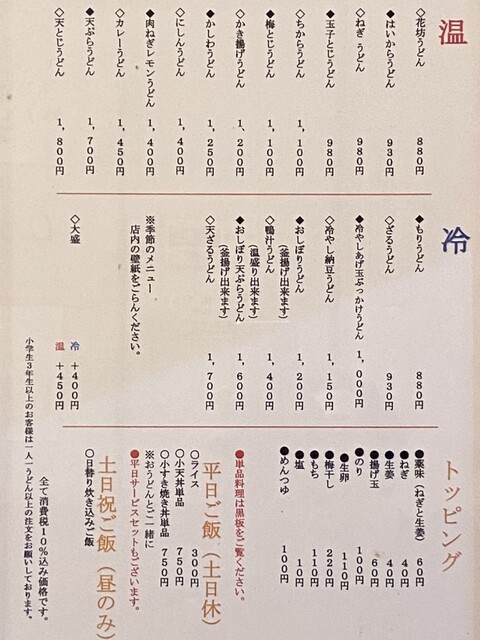 温
◇花坊うどん 880円
◆はいからうどん 930円
◇ねぎ うどん 980円
◆玉子とじうどん 980円
◇ちからうどん 1,100円
◆梅とじうどん 1,100円
◇かき揚げうどん 1,200円
◆かしわうどん 1,250円
◇にしんうどん 1,400円
◆肉ねぎレモンうどん 1,400円
◇カレーうどん 1,450円
◆天ぷらうどん 1,700円
◇天とじうどん 1,800円
冷
◆もりうどん 880円
◇ざるうどん 930円
◆冷やしあげ玉ぶっかけうどん 1,000円
◇冷やし納豆うどん 1,150円
◆おしぼりうどん 1,200円
(釜揚げ出来ます)
◇鴨汁うどん 1,400円
(温盛り出来ます)
◆おしぼり天ぷらうどん 1,600円
(釜揚げ出来ます)
◇天ざるうどん 1,700円
※季節のメニュー
店内の壁紙をごらんください。
◇大盛
冷 +400円
温 +450円
トッピング
●薬味(ねぎと生姜) 60円
●ねぎ 40円
●生姜 40円
●揚げ玉 60円
●のり 100円
●生卵 110円
●梅干し 220円
●もち 110円
●塩 10円
●めんつゆ 100円
●単品料理は黒板をご覧ください。
平日ご飯(土日休)
○ライス 300円
○小天丼単品 750円
○小すき焼き丼単品 750円
※おうどんとご一緒に
●平日サービスセットもございます。
土日祝ご飯(昼のみ)
○日替り炊き込みご飯
全て消費税10%込み価格です。
小学生3年生以上のお客様は一人一うどん以上の注文をお願いしております。